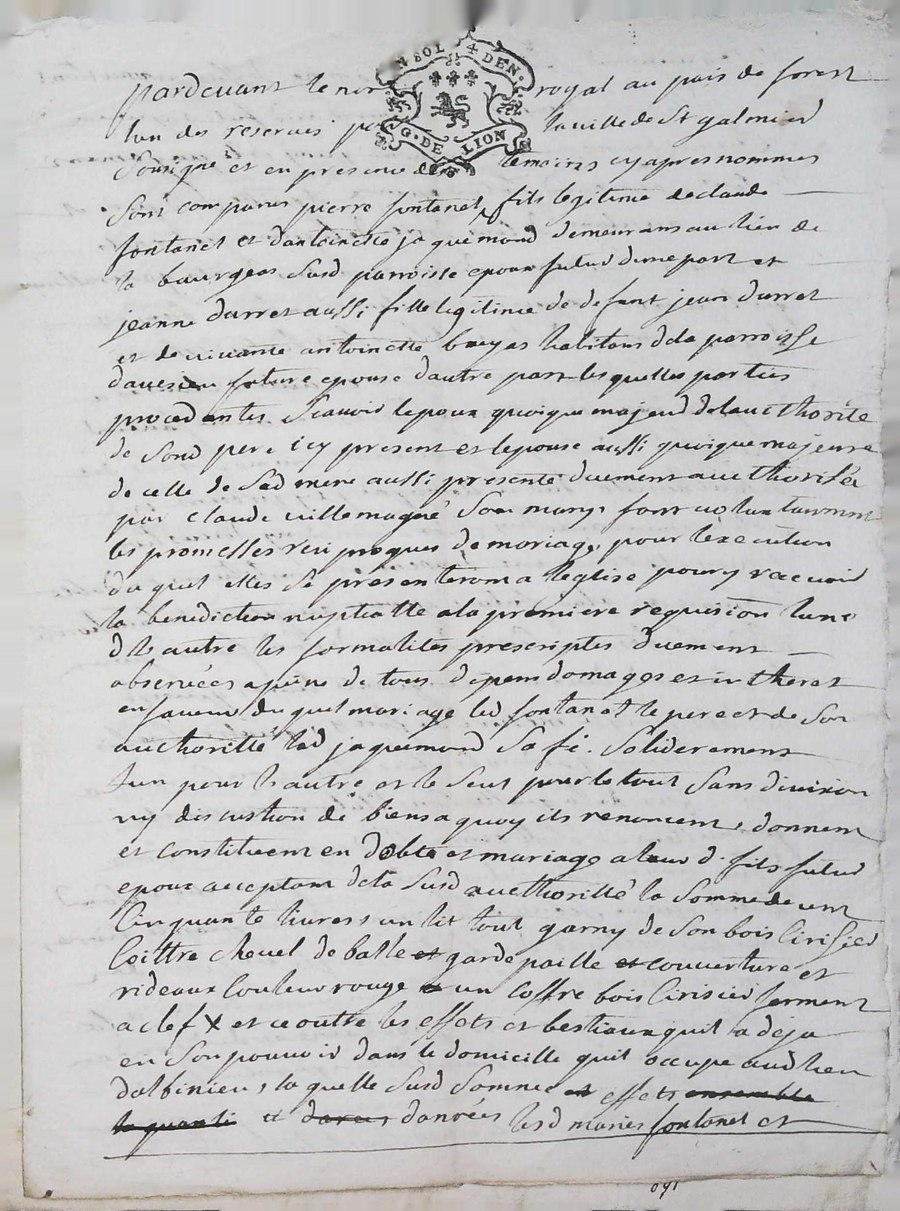 UN SOL 4 DEN.
G. DE LION
pardevant le no royal au païs de forest
lun des reservés po la ville de St galmier
Sousigné et en presence des temoins cy apres nommés
Sont comparus pierre fontanet fils legitime de claude
fontanet et dantoinette jaquemond demeurans au lieu de
la susd parroisse epoux futur dune part et
jeanne durret aussi fille legitime de defunt jean durret
et de vivante antoinette habitans de la parroisse
future epouse dautre part lesquelles parties
procedantes Scavoir lepoux quoique majeur de lauthorité
de Son pere icy present et lepouse aussi quoique majeure
de celle de Sad mere aussi presente duement authorisée
par claude villemagne Son mary, font volontairement
les promesses resiproques de mariage, pour lexecution
duquel elles Se presenteront a leglise pour y recevoir
la benediction nuptialle a la premiere requision lune
de lautre les formalites prescriptes duement
observées a peine de tous depens domages et intherets
en faveur duquel mariage led fontanet le pere et de Son
authorité lad jaquemond Sa fe. Soliderement
lun pour lautre et le Seul pour le tout Sans division
ny discustion de biens a quoy ils renoncent, donnent
et constituent en dobte et mariage a leur d. fils futur
epoux acceptant de la Susd authorité la Somme de cent
Cinquante livres, un lit tout garny de Son bois Cirisier
Coittre chevet de balle et garde paille et couverture et
rideaux Couleur rouge un coffre bois Cirisier ferment
a clef X et ce outre les effets et bestiaux quil a deja
en Son pouvoir dans le domicille quil occupe aud lieu
dalbinieu, la quelle Susd Somme et effets ensemble
la quanti et danrées lesd mariés fontanet et